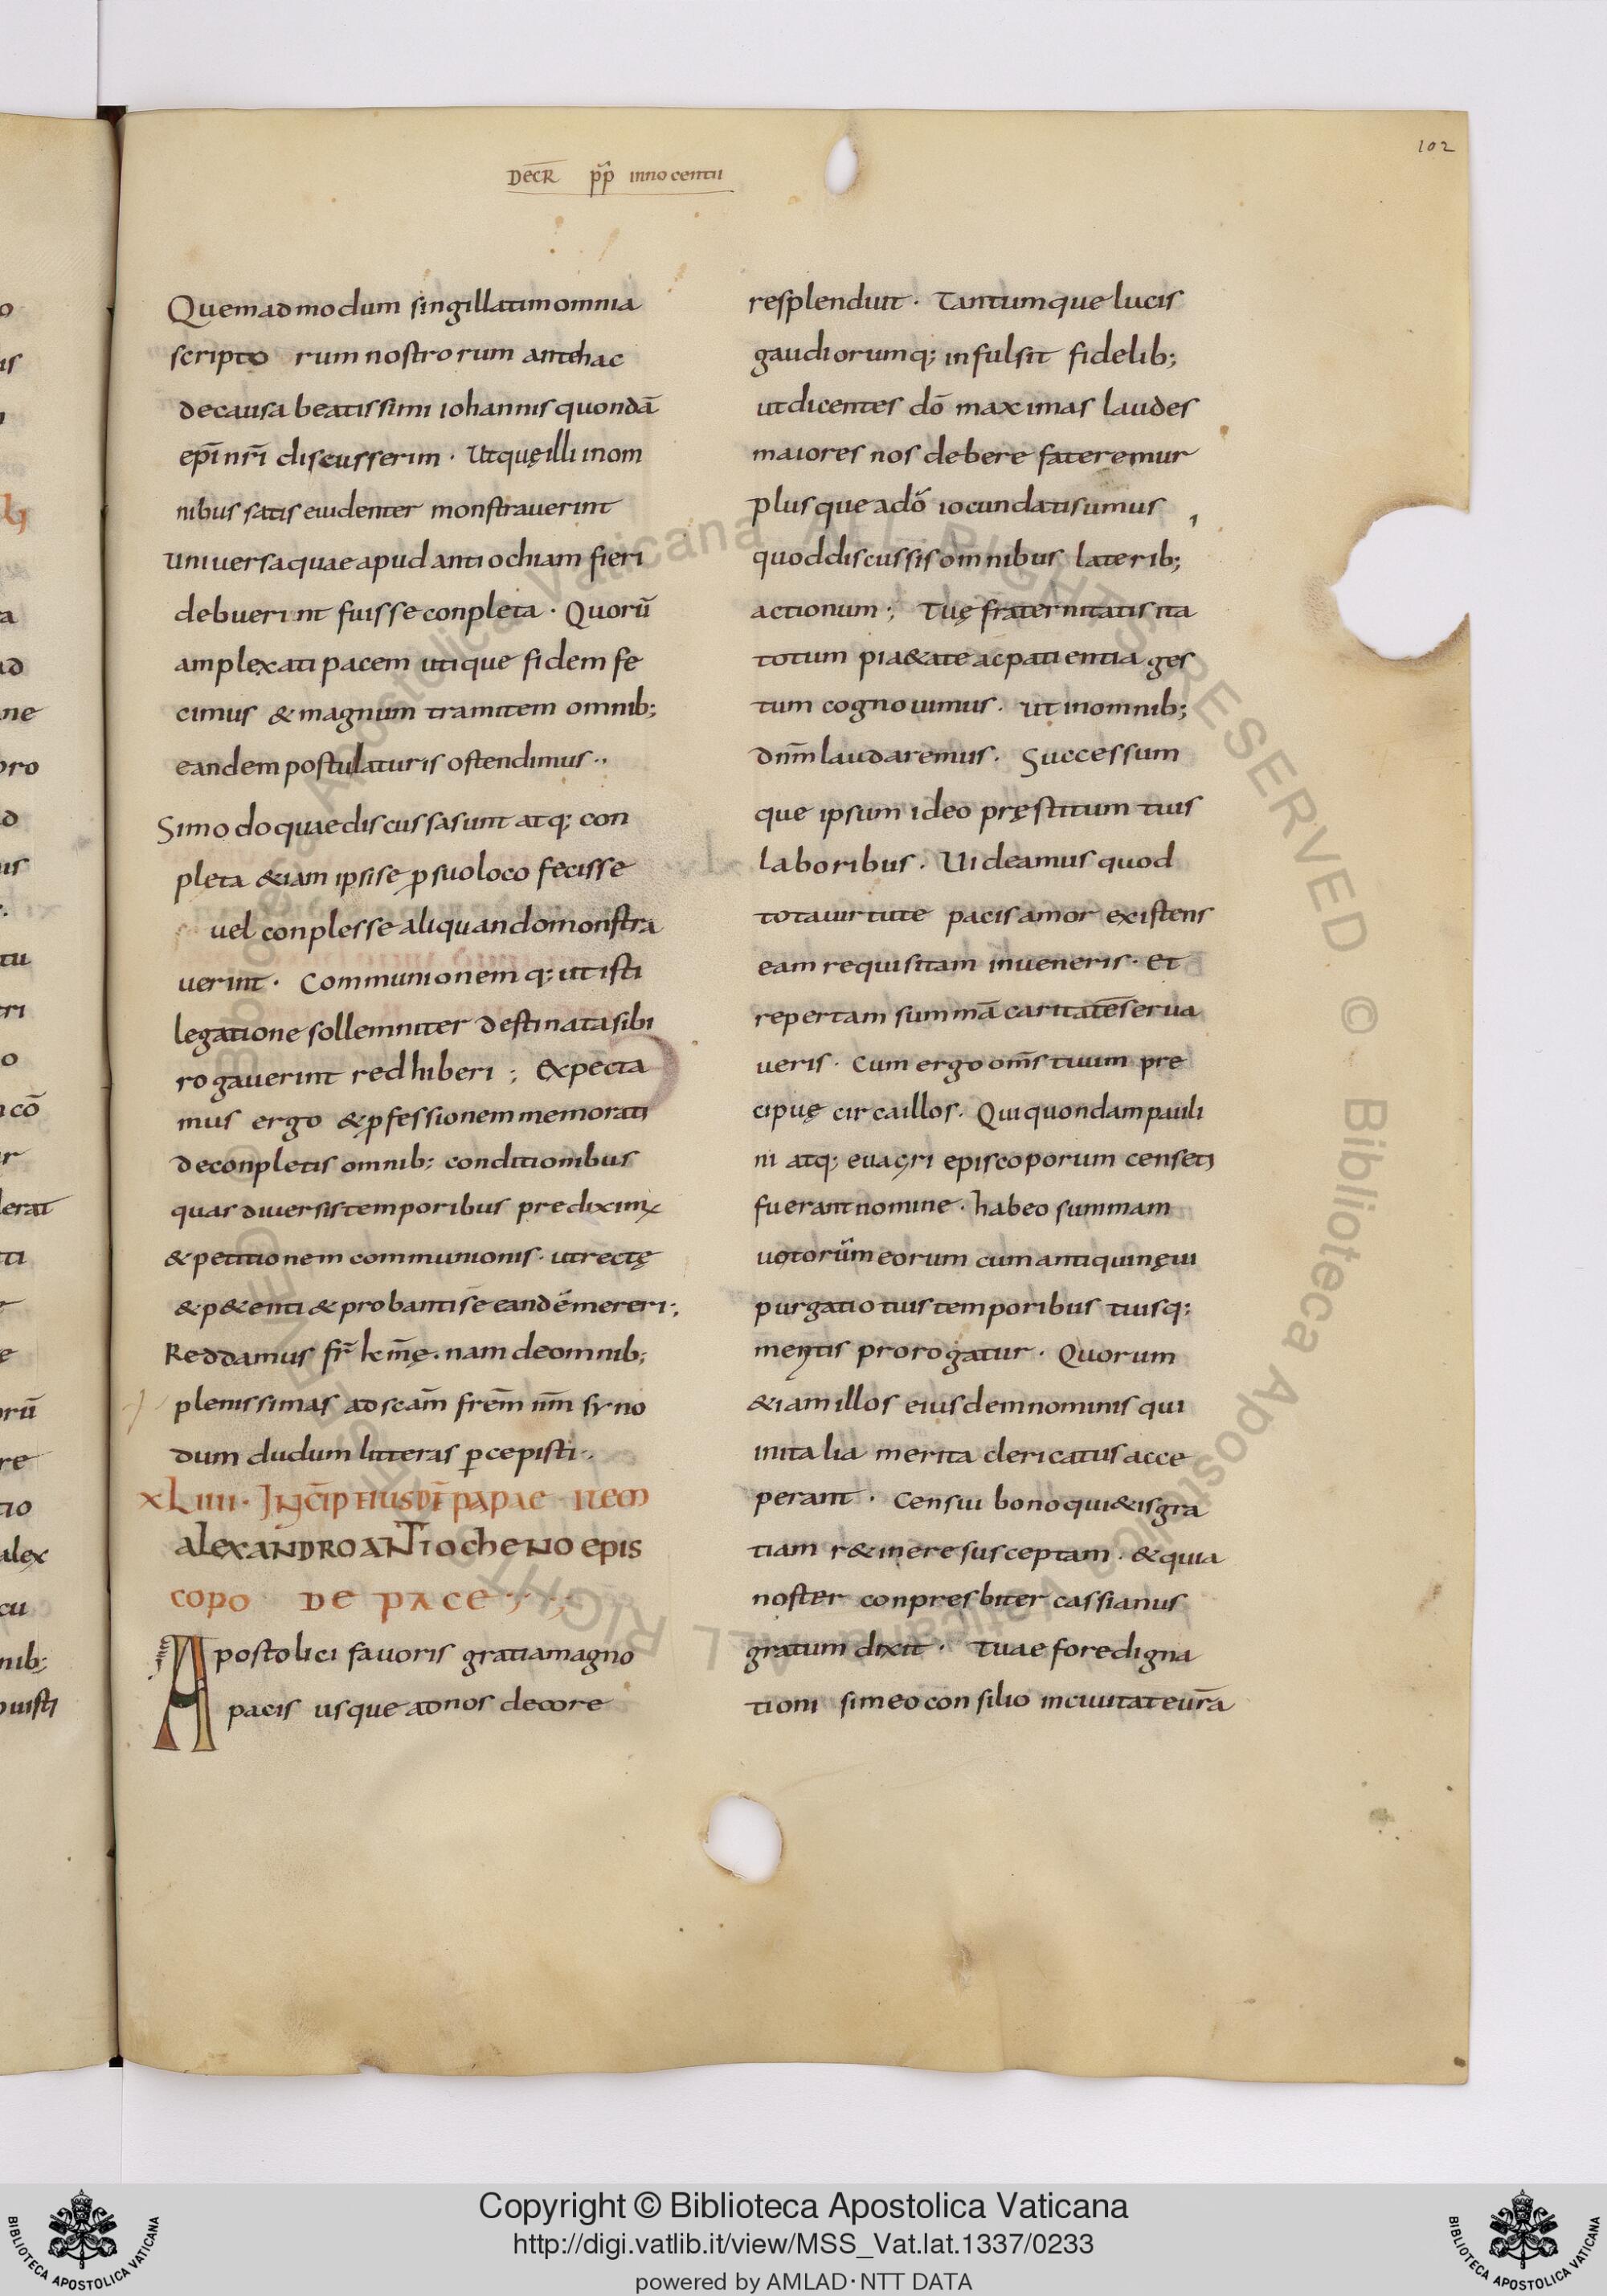 102
DECR̄ p̄p innocentii
Quemadmodum singillatim omnia
scripto rum nostrorum antehac
de causa beatissimi iohannis quondā
ep̄i nr̄i discusserim · Utquę illi in om
nibus satis euidenter monstrauerint
Uniuersa quae apud antiochiam fieri
debuerint fuisse conpleta · Quorū
amplexati pacem utique fidem fe
cimus & magnum tramitem omnib;
eandem postulaturis ostendimus ·,
Simodo quae discussa sunt atq; con
pleta &iam ipsi se p suo loco fecisse
uel conplesse aliquando monstra
uerint · Communionemq; ut isti
legatione sollemniter destinata sibi
rogauerint redhiberi ; Expecta
mus ergo & pfessionem memorati
de conpletis omnib; conditionibus
quas diuersis temporibus predixim᷒
& petitionem communionis · ut rectę
& p&enti & probanti se eandē mereri ·,
Reddamus fr̄ km̄ę · nam de omnib;
plenissimas ad scām frēm nm̄ syno
dum dudum litteras pcepisti ·,
XLIIII · INCIP EIUSDĒ PAPAE ITEM
ALEXANDRO ANTIOCHENO EPIS
COPO DE PACE
Apostolici fauoris gratia magno
pacis usque ad nos decore
resplenduit · Tantumque lucis
gaudiorumq; infulsit fidelib;
ut dicentes dō maximas laudes
maiores nos debere fateremur
plusque adō iocundati sumus
quod discussis omnibus laterib;
actionum ; Tuę fraternitatis ita
totum pi&ate ac patientia ges
tum cognouimus · ut in omnib;
dnm̄ laudaremus · Successum
que ipsum ideo pręstitum tuis
laboribus · Uideamus quod
tota uirtute pacis amor existens
eam requisitam inueneris · Et
repertam summā caritatē serua
ueris · Cum ergo om̄s tuum pre
cipuę circa illos · Qui quondam pauli
ni atq; euagri episcoporum censeti
fuerant nomine · habeo summam
uotorūm eorum cum antiqui nęui
purgatio tuis temporibus tuisq;
meritis prorogatur · Quorum
&iam illos eiusdem nominis qui
in italia merita clericatus acce
perant · Censui bono qui&is gra
tiam r&inere susceptam · & quia
noster conpresbiter cassianus
gratum dixit · Tuae fore digna
tioni si meo consilio in ciuitate ur̄a
Copyright © Biblioteca Apostolica Vaticana
http://digi.vatlib.it/view/MSS_Vat.lat.1337/0233
powered by AMLAD·NTT DATA